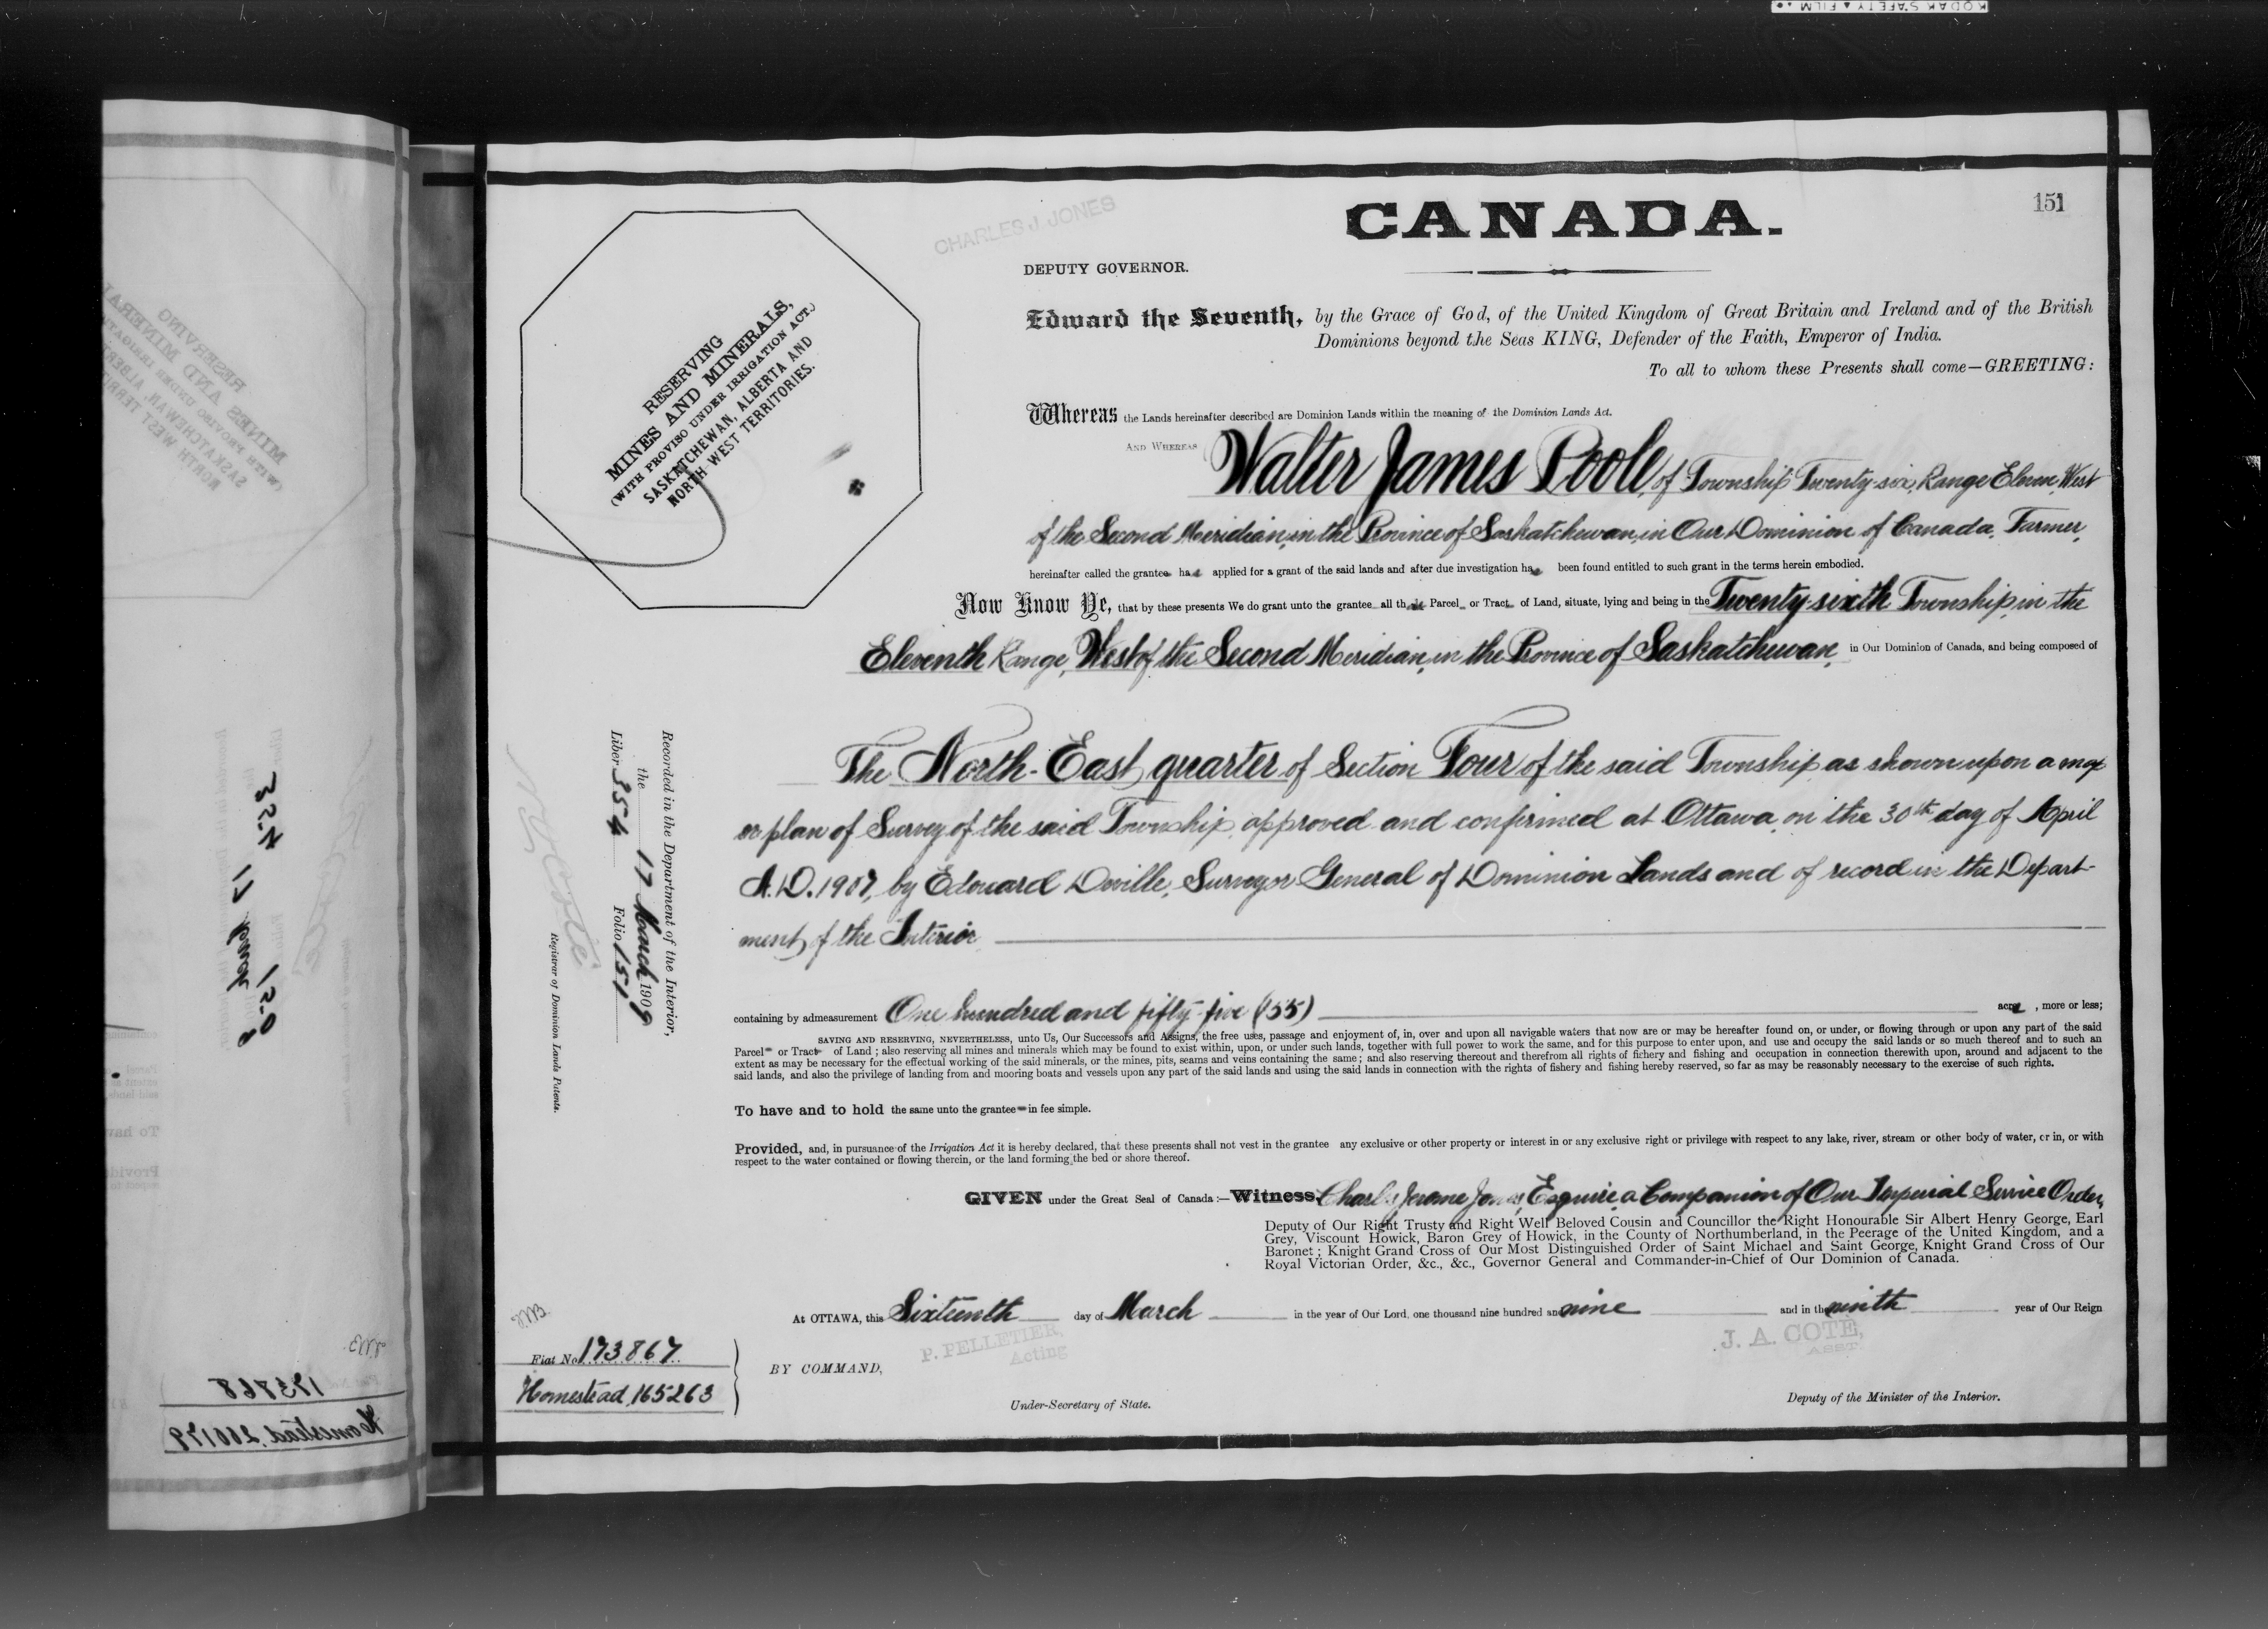 KODAK SAFETY FILM
151
CHARLES J JONES
CANADA.
DEPUTY GOVERNOR.
RESERVING
MINES AND MINERALS,
(WITH PROVISO UNDER IRRIGATION ACT.)
SASKATCHEWAN, ALBERTA AND
NORTH WEST TERRITORIES.
Edward the Seventh, by the Grace of God, of the United Kingdom of Great Britain and Ireland and of the British
Dominions beyond the Seas KING, Defender of the Faith, Emperor of India.
To all to whom these Presents shall come—GREETING:
Whereas the Lands hereinafter described are Dominion Lands within the meaning of the Dominion Lands Act.
AND WHEREAS Walter James Poole, of Township Twenty-six, Range Eleven, West
of the Second Meridian, in the Province of Saskatchewan, in Our Dominion of Canada, Farmer,
hereinafter called the grantee has applied for a grant of the said lands and after due investigation has been found entitled to such grant in the terms herein embodied.
Now Know Ye, that by these presents We do grant unto the grantee all that Parcel or Tract of Land, situate, lying and being in the Twenty-sixth Township, in the
Eleventh Range, West of the Second Meridian, in the Province of Saskatchewan, in Our Dominion of Canada, and being composed of
The North-East quarter of Section Four of the said Township, as shown upon a map
or plan of Survey of the said Township, approved and confirmed at Ottawa, on the 30th day of April
A.D. 1907, by Edouard Deville, Surveyor General of Dominion Lands and of record in the Depart-
ment of the Interior
containing by admeasurement One hundred and fifty-five (155) acres, more or less;
SAVING AND RESERVING, NEVERTHELESS, unto Us, Our Successors and Assigns, the free uses, passage and enjoyment of, in, over and upon all navigable waters that now are or may be hereafter found on, or under, or flowing through or upon any part of the said
Parcel or Tract of Land; also reserving all mines and minerals which may be found to exist within, upon, or under such lands, together with full power to work the same, and for this purpose to enter upon, and use and occupy the said lands or so much thereof and to such an
extent as may be necessary for the effectual working of the said minerals, or the mines, pits, seams and veins containing the same; and also reserving thereout and therefrom all rights of fichery and fishing and occupation in connection therewith upon, around and adjacent to the
said lands, and also the privilege of landing from and mooring boats and vessels upon any part of the said lands and using the said lands in connection with the rights of fishery and fishing hereby reserved, so far as may be reasonably necessary to the exercise of such rights.
To have and to hold the same unto the grantee in fee simple.
Provided, and, in pursuance of the Irrigation Act it is hereby declared, that these presents shall not vest in the grantee any exclusive or other property or interest in or any exclusive right or privilege with respect to any lake, river, stream or other body of water, or in, or with
respect to the water contained or flowing therein, or the land forming the bed or shore thereof.
GIVEN under the Great Seal of Canada:—Witness, Charles Jerome Jones, Esquire, a Companion of Our Imperial Service Order,
Deputy of Our Right Trusty and Right Well Beloved Cousin and Councillor the Right Honourable Sir Albert Henry George, Earl
Grey, Viscount Howick, Baron Grey of Howick, in the County of Northumberland, in the Peerage of the United Kingdom, and a
Baronet; Knight Grand Cross of Our Most Distinguished Order of Saint Michael and Saint George, Knight Grand Cross of Our
Royal Victorian Order, &c., &c., Governor General and Commander-in-Chief of Our Dominion of Canada.
At OTTAWA, this Sixteenth day of March in the year of Our Lord, one thousand nine hundred and nine and in the ninth year of Our Reign
P. PELLETIER,
Acting
J. A. COTÉ,
ASST.
BY COMMAND,
Under-Secretary of State.
Deputy of the Minister of the Interior.
Recorded in the Department of the Interior,
the 17 March 1909
Liber 354 Folio 151
Registrar of Dominion Lands Patents.
Fiat No. 173867
Homestead, 165263
173868
Homestead, 200179